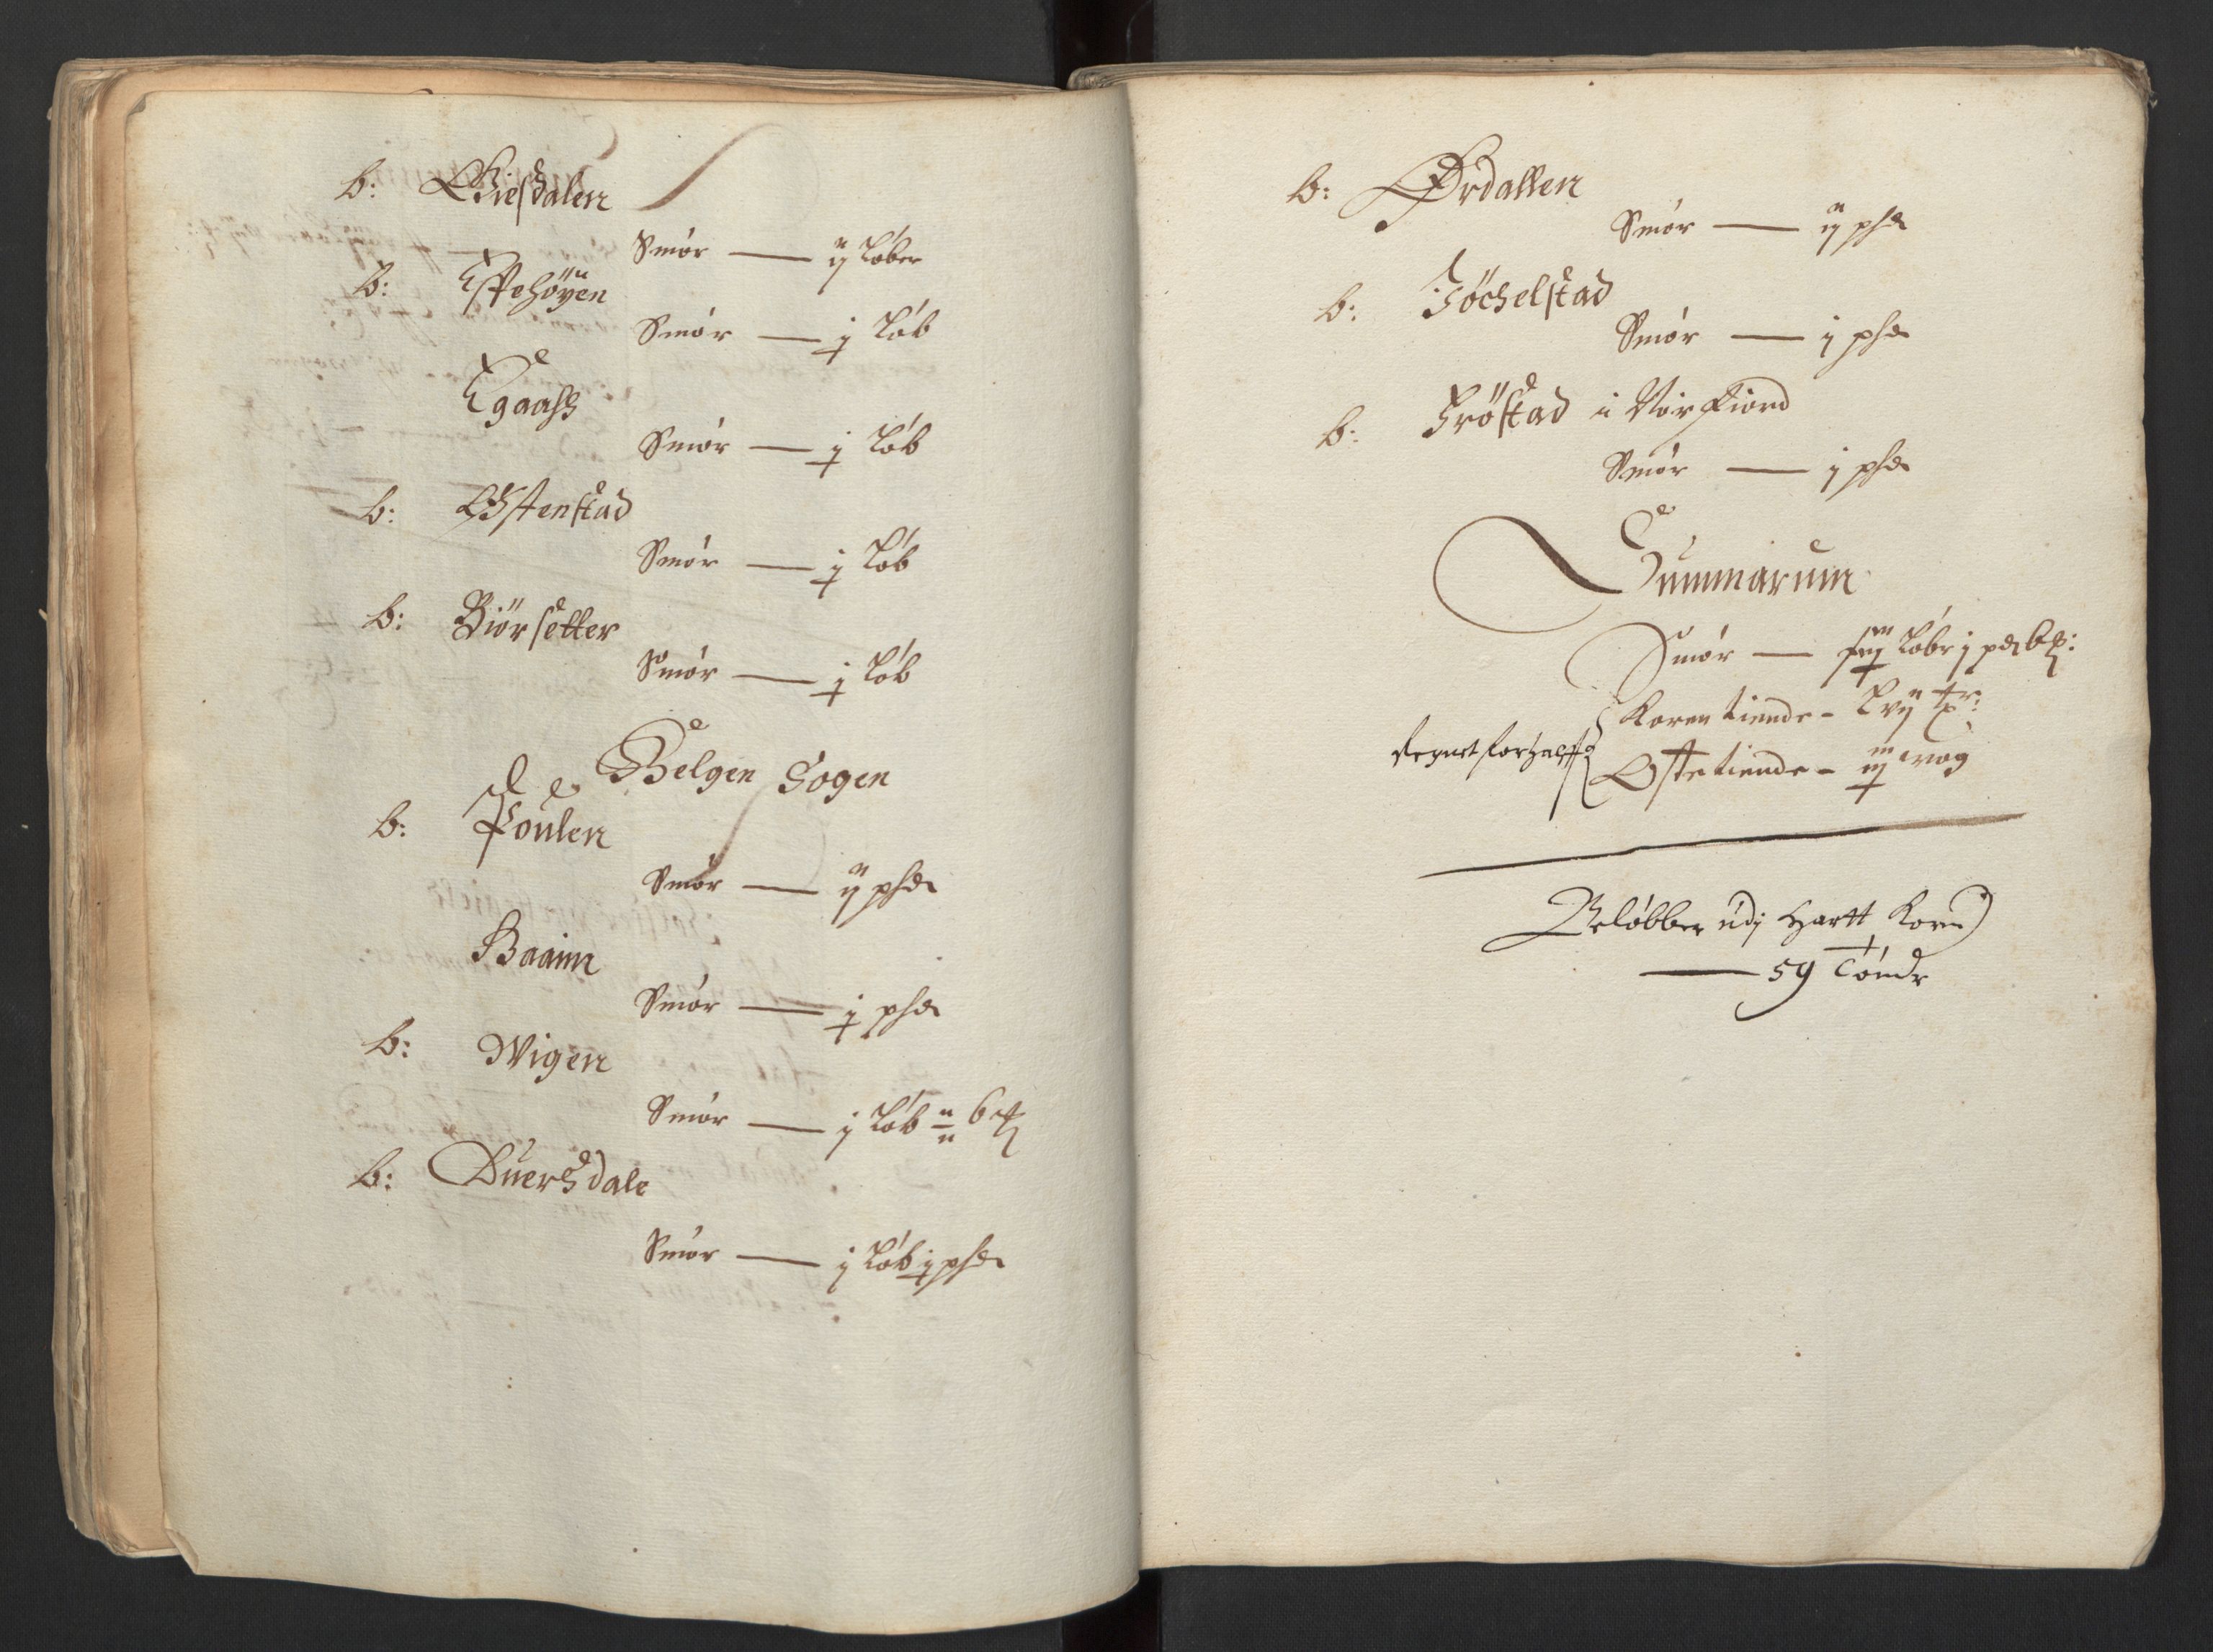 b: Giesdalen
Smör — ij Løber
b: Estehöyen
Smör — j Løb
Egaass
Smör — j Løb
b: Østenstad
Smör — j Løb
b: Biörsetter
Smör — j Løb
Belgen Sogen
b: Foulen
Smör — ij pd
Baaim
Smör — j pd
b: Wigen
Smör — j Løb 6
b: Duersdale
Smör — j Løb j pd
b: Ørdallen
Smör — ij pd
b: Söchelstad
Smör — j pd
b: Fröstad i Vor Fiord
Smör — j pd
Summarum
Smör — Løbr j pd 6
Koren tiende - Lvij tr:
Regnet for halft
Oste tiende - iij wog
Beløbber udj Hartt Korn
— 59 Tønder